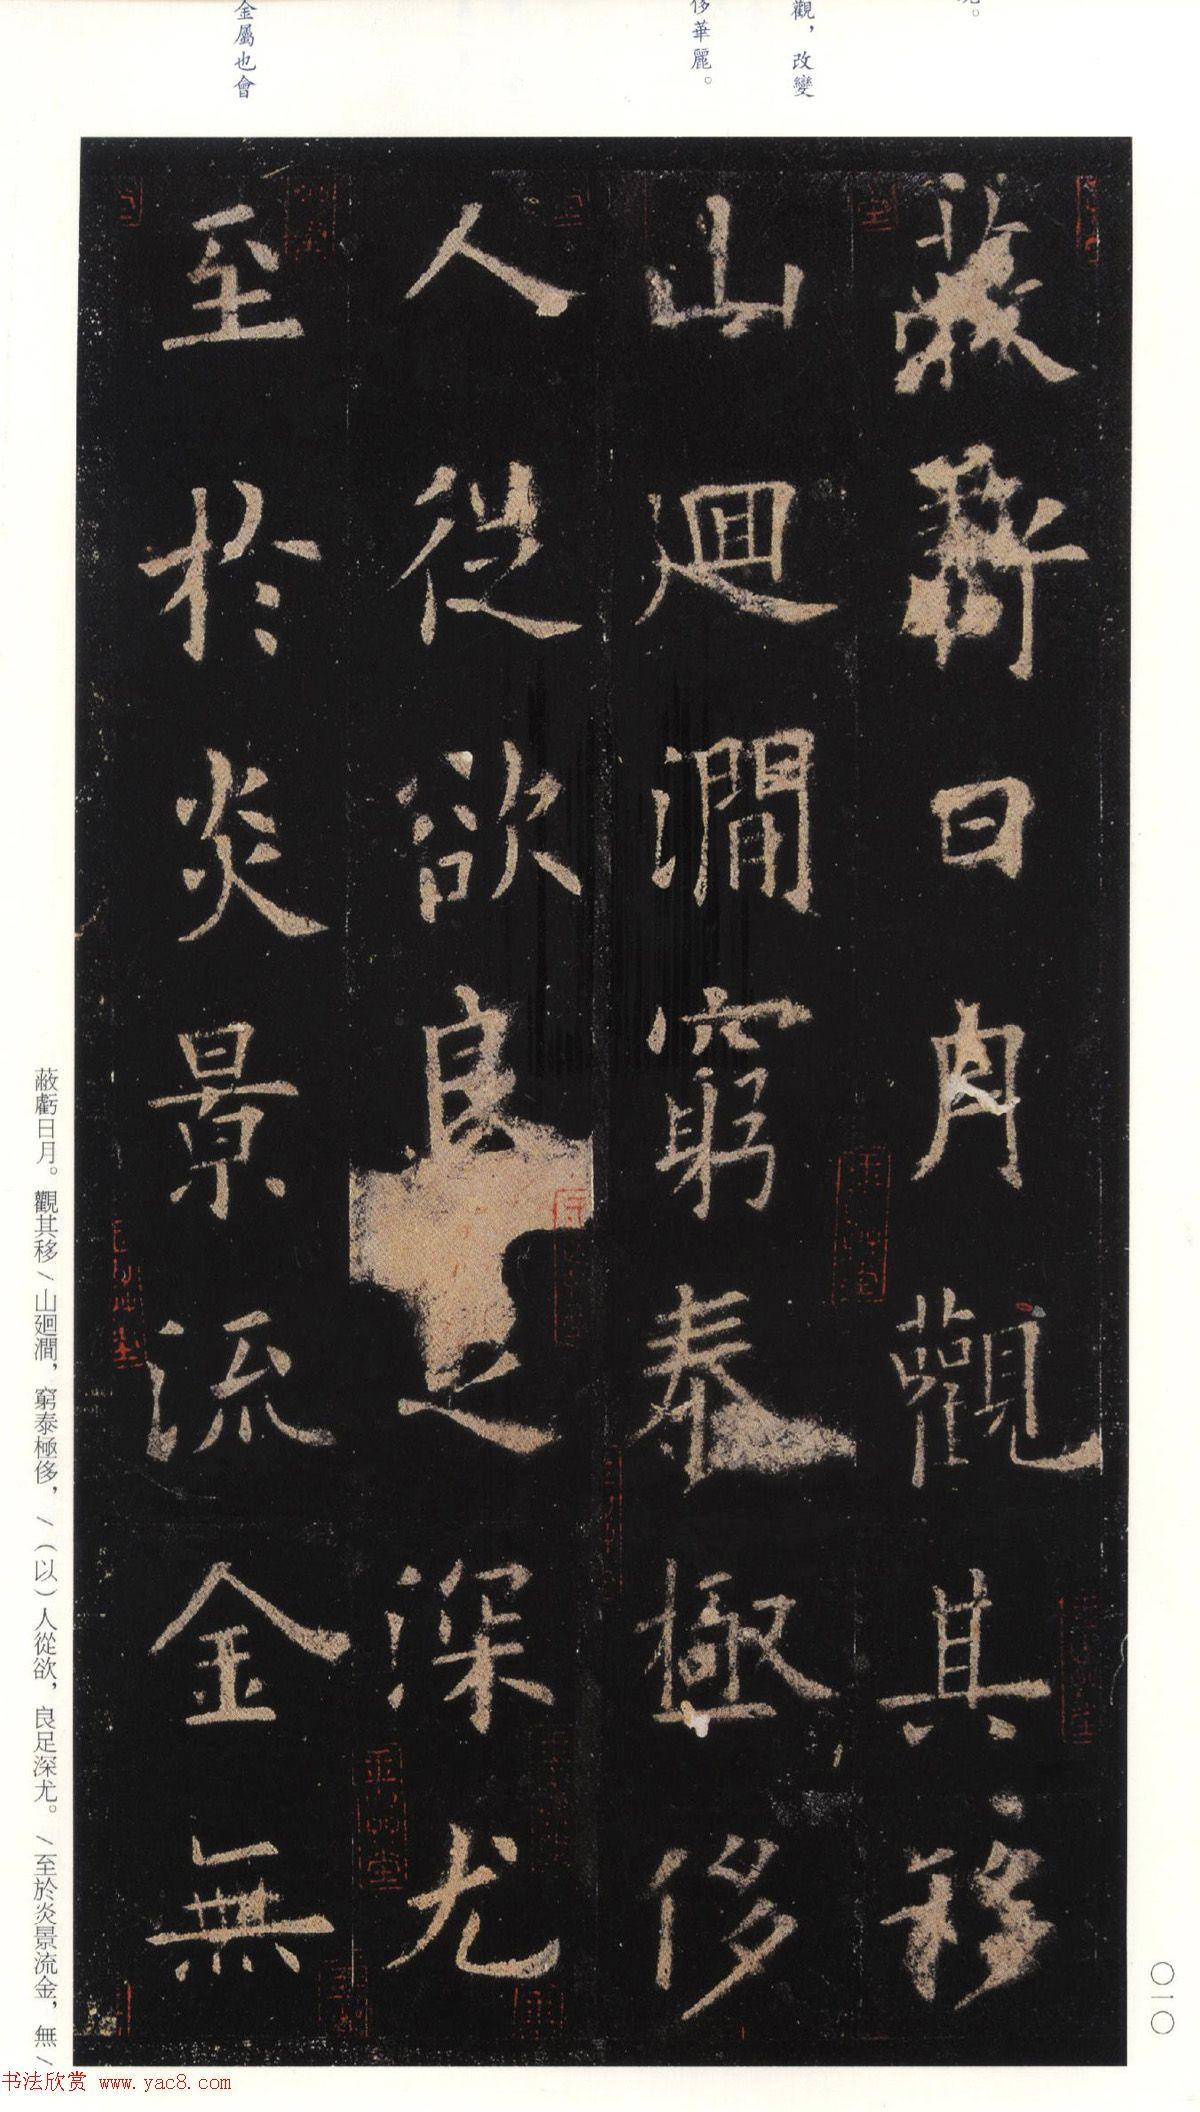 觀，改變
侈華麗。
金屬也會
蔽虧日月觀其移
山廻澗窮泰極侈
人從欲良足深尤
至於炎景流金無
〇一〇
蔽虧日月。觀其移/山廻澗，窮泰極侈，/（以）人從欲，良足深尤。/至於炎景流金，無/
书法欣赏 www.yac8.com